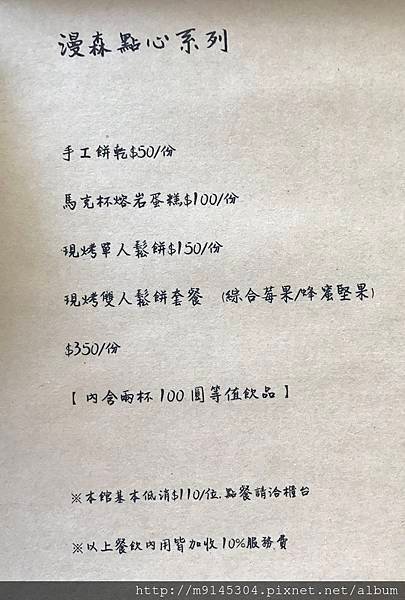 漫森點心系列
手工餅乾$50/份
馬克杯熔岩蛋糕$100/份
現烤單人鬆餅$150/份
現烤雙人鬆餅套餐 (綜合莓果/蜂蜜堅果)
$350/份
【內含兩杯100圓等值飲品】
※本館基本低消$110/位.點餐請洽櫃台
※以上餐飲內用皆加收10%服務費
http://m9145304.pixnet.net/album